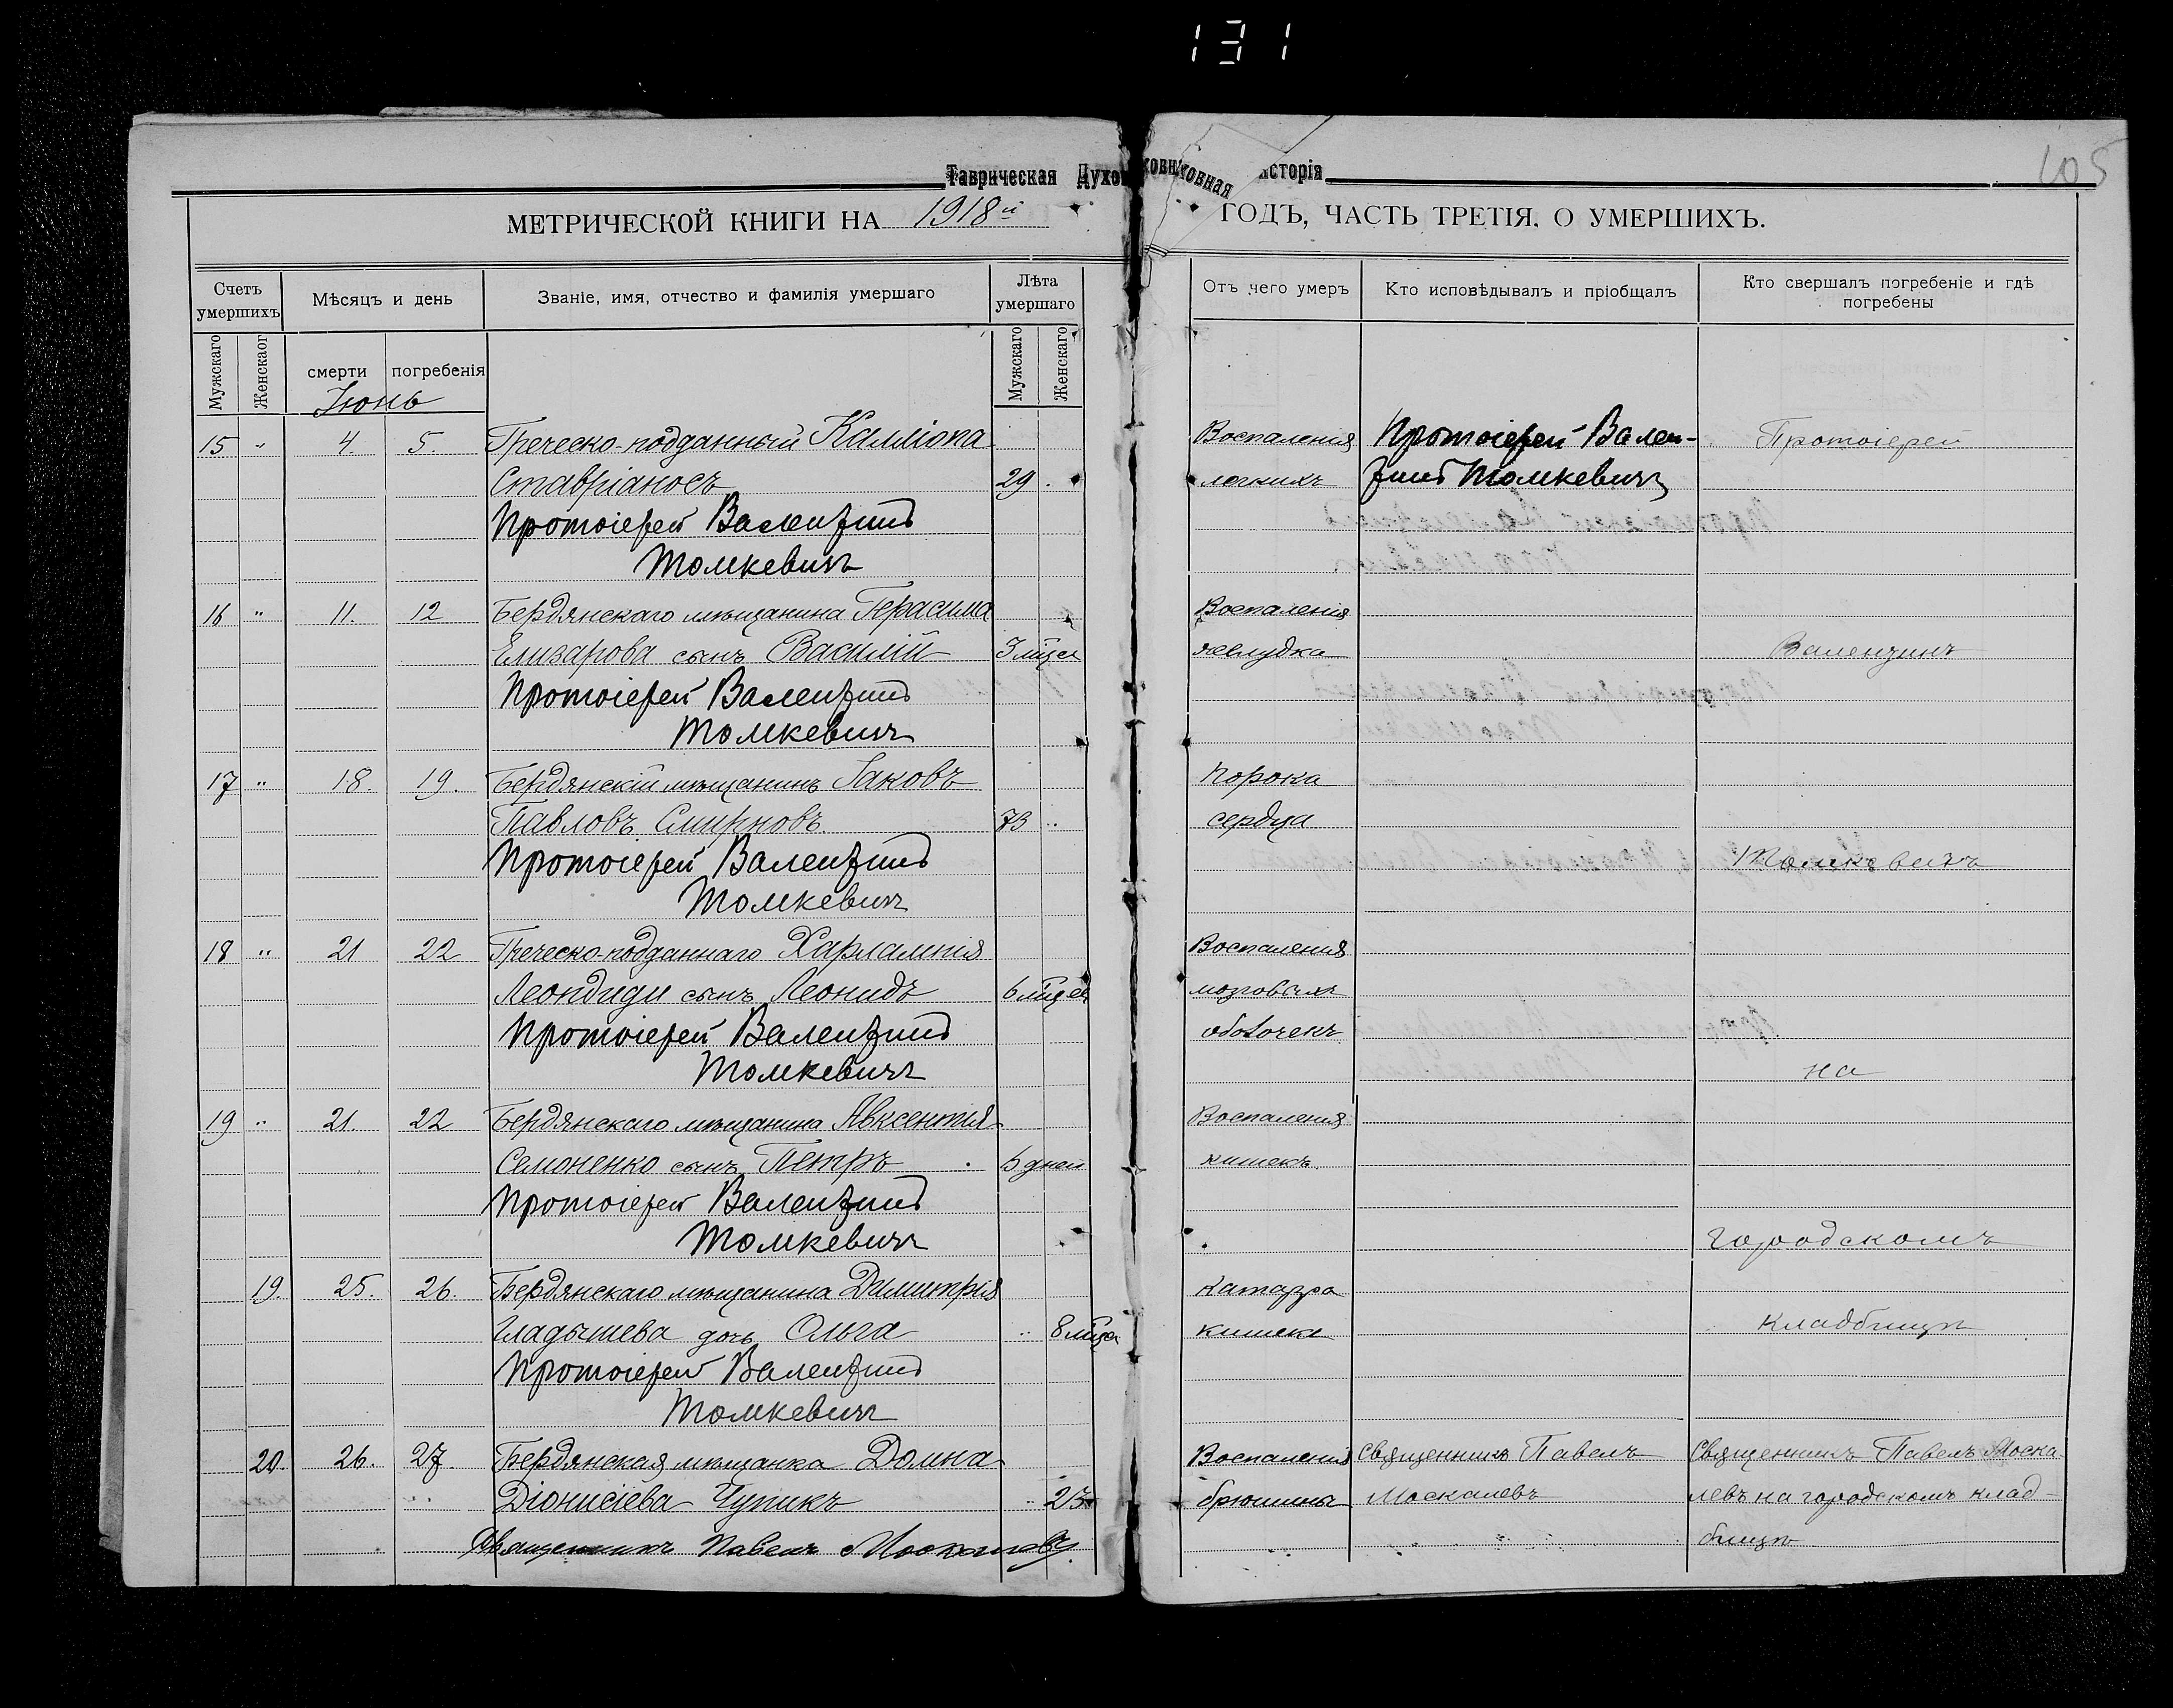 131
105
Таврическая Духовная исторія
МЕТРИЧЕСКОЙ КНИГИ НА 1918й ГОДЪ, ЧАСТЬ ТРЕТІЯ. О УМЕРШИХЪ.
Счетъ умершихъ
Мѣсяцъ и день
Званіе, имя, отчество и фамилія умершаго
Лѣта умершаго
Отъ чего умеръ
Кто исповѣдывалъ и пріобщалъ
Кто свершалъ погребеніе и гдѣ погребены
Мужскаго
Женскаог
смерти
погребенія
Мужскаго
Женскаго
Іюнь
15 " 4. 5. Греческо-подданный Калліопа Воспаленія Протоіерей Вален- Протоіерей
Ставріаносъ 29 легкихъ тинъ Томкевичъ
Протоіерей Валентинъ
Томкевичъ
16 " 11. 12 Бердянскаго мѣщанина Герасима Воспаленія
Елизарова сынъ Василій 3 мѣся желудка Валентинъ
Протоіерей Валентинъ
Томкевичъ
17 " 18. 19. Бердянскій мѣщанинъ Іаковъ Порока
Павловъ Смирновъ 73 " сердца
Протоіерей Валентинъ Томкевичъ
Томкевичъ
18 " 21 22 Греческо-подданнаго Харлампія Воспаленія
Леондиди сынъ Леонидъ 6 мѣсяц мозговыхъ
Протоіерей Валентинъ оболочекъ
Томкевичъ на
19 " 21. 22 Бердянскаго мѣщанина Авксентія Воспаленія
Семоненко сынъ Петръ дней кишекъ
Протоіерей Валентинъ
Томкевичъ городскомъ
19. 25. 26. Бердянскаго мѣщанина Димитрія Катарра
Гладышева дочь Ольга " 8 мѣся кишекъ кладбищѣ
Протоіерей Валентинъ
Томкевичъ
20. 26. 27. Бердянская мѣщанка Домна Воспаленія Священникъ Павелъ Священникъ Павелъ Моска-
Діонисіева Чупикъ " 23 брюшины Москалевъ левъ на городскомъ клад-
Священникъ Павелъ Москалевъ бищѣ